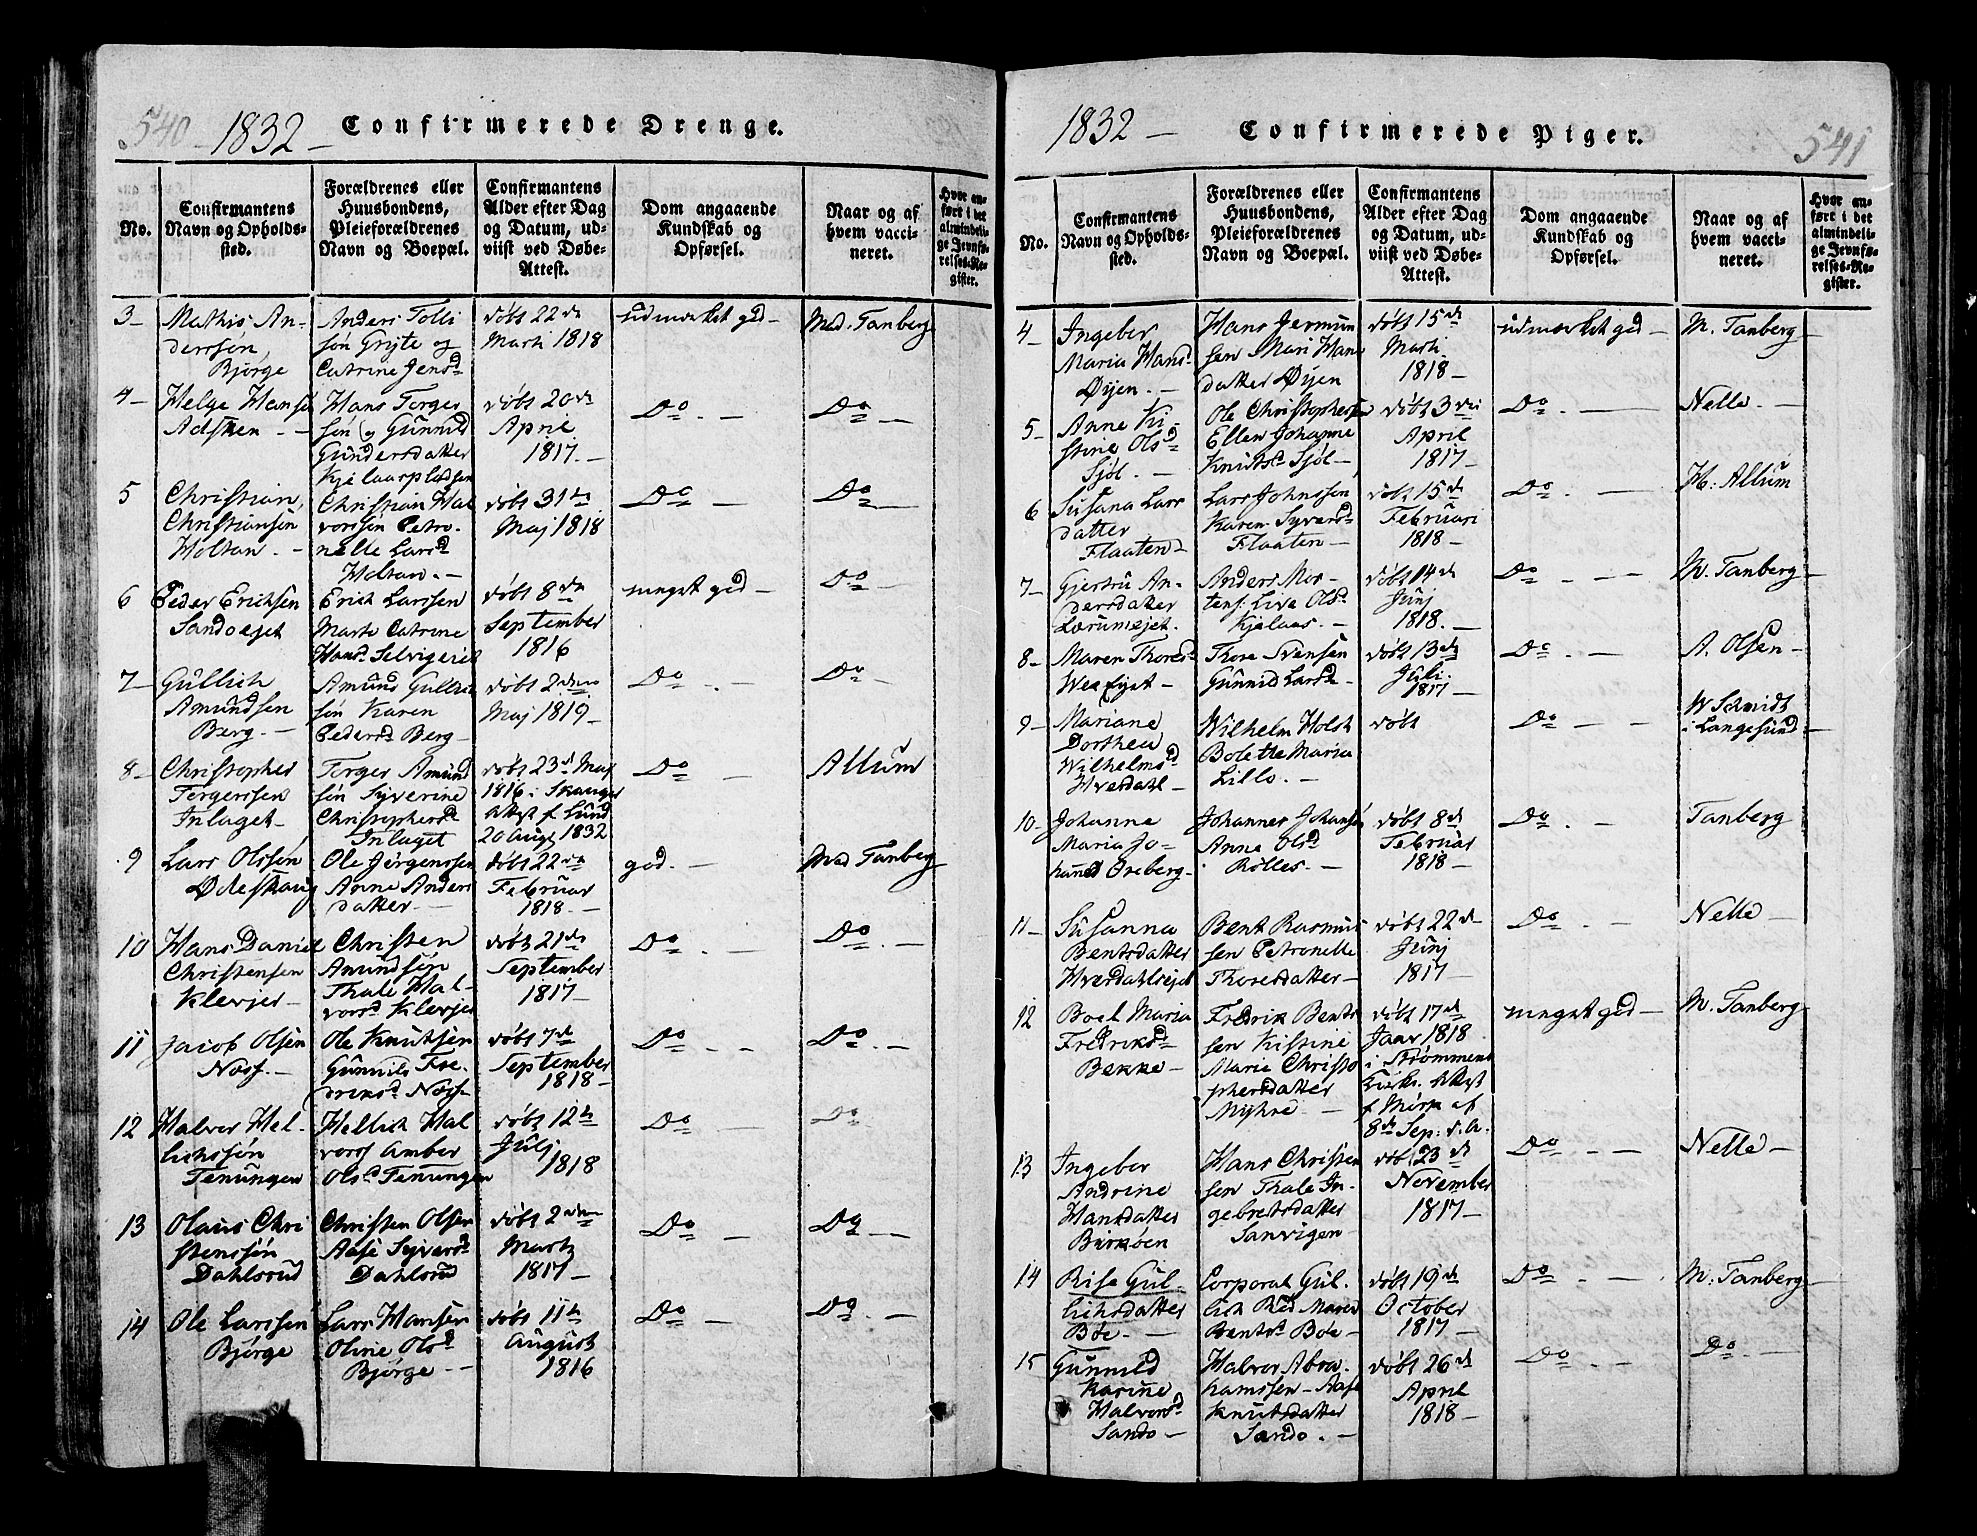 540 1832 – Confirmerede Drenge.
No.
Confirmantens
Navn og Opholds-
sted.
Forældrenes eller
Huusbondens,
Pleieforældrenes
Navn og Boepæl.
Confirmantens
Alder efter Dag
og Datum, ud-
viist ved Døbe-
Attest.
Dom angaaende
Kundskab og
Opførsel.
Naar og af
hvem vacci-
neret.
Hvor an-
ført i det
almindeli-
ge Jevnfø-
relses-Re-
gister.
3 –
Mathis An-
derssøn
Bjørge
Anders Tolli
søn Grÿte og
Catrine Jensd
døbt 22 de
Marti 1818
udmærket god –
Mad. Tanberg
4 –
Helge Hansø
Adsken – –
Hans Torger
søn og Gunnild
Gundersdatter
døbt 20 de
April
1817. –
Do. –
Do –
5
Christian
Christiansøn
Holtan. –
Christian Hal
vorssøn Petro-
nelle Larsd
Holtan. –
døbt 31 te
Maj 1818
Do –
Do –
6
Peder Erichsen
Sandoejet
Erich Larssen
Marte Catrine
Hansd
døbt 8 de
September
1816
meget god –
Do –
7 –
Gullich
Amundsen
Berg. –
Amund Gullich
søn Karen
Pedersd Berg –
døbt 2 den
Maj 1819 –
Do . –
Do –
8 –
Christopher
Torgerssen
Inlaget –
Torger Amund
søn Syverine
Christophersd
Inlaget
døbt 23 d Maj
1816.
Attest f Lund
20 Augt 1832
Do –
Allum
9
Lars Olssøn
Ødeskaug
Ole Jørgenssen
Anne Anders
datter –
døbt 22 de
Februar
1818. –
god. –
Mad Tanberg
10
Hans Daniel
Christensen
Klevjer –
Christen
Amundsøn
Thale Hal-
vorsd Klevjer
døbt 21 de
September
1817 –
Do . –
Do . –
11
Jacob Olsen
Næss. –
Ole Knutsen
Gunnild Fre-
driksd Næss –
døbt 7 de
September
1818 –
Do – –
Do . –
12
Halvor Hel-
lichssøn
Tenungen
Hellich Hal
vorss Amber
Olsd Tenungen
døbt 12 te
Julj
1818
Do –
Do
13
Olaus Chri
stenssøn
Dahlsrud
Christen Olsen
Aase Syversd
Dahlsrud
døbt 2 den
Marti
1817 –
Do –
Do –
14
Ole Larssen
Bjørge
Lars Hansen
Oline Olsd
Bjørge – –
døbt 11 te
August
1816
Do –
Do –
1832 – Confirmerede Piger. 541
No.
Confirmantens
Navn og Opholds-
sted.
Forældrenes eller
Huusbondens,
Pleieforældrenes
Navn og Boepæl.
Confirmantens
Alder efter Dag
og Datum, ud-
viist ved Døbe-
Attest.
Dom angaaende
Kundskab og
Opførsel.
Naar og af
hvem vacci-
neret.
Hvor an-
ført i det
almindeli-
ge Jevnfø-
relses-Re-
gister.
4 –
Ingebor
Maria Hansd
Øijen. –
Hans Jermun
sen Mari Hans
datter Øijen
døbt 15 de
Marti
1818 –
udmærket god –
M. Tanberg
5 –
Anne Ki-
stine Olsd
Sjøl. –
Ole Christophersen
Ellen Johanne
Knutsd Sjøl –
døbt 3 die
April
1817 –
Do . –
Nelle. –
6
Susana Lars
datter
Flaaten –
Lars Johnssen
Karen Syversd
Flaaten –
døbt 15 de
Februari
1818 –
Do . –
H: Allum
7 –
Gjertru An-
dersdatter
Lærumejet. –
Anders Mor-
tens: Live Olsd
Kjelaas. –
døbt 14 de
Junj
1818. –
Do – –
M. Tanberg
8 –
Maren Thoresd
–
Thore Svensen
Gunnild Larsd –
døbt 13 de
Juli.
1817 –
Do . –
A. Olsen –
9 –
Mariane
Dorthea
Wilhelmsd
Hverdahl –
Wilhelm Holst
Bolette Maria
Lillo. –
døbt
Do – –
W Schmidt
i Langesund –
10 –
Johanne
Maria Jo-
hansd Oreberg –
Johannes Johansø
Anne Olsd
Rølles. –
døbt 8 de
Februar
1818 –
Do . –
Tanberg
11 –
Susanna
Bentsdatter
Hverdahlsejet
Bent Rasmus
sen Petronelle
Thoresdatter –
døbt 22 de
Junj
1817 –
Do . –
Nelle –
12
Boel Maria
Fredriksd
Bekke –
Fredrik Bents
sen Kistine
Marie Christo
phersdatter
Myhre. –
døbt 17 de
Janr 1818
i Strømmens
Kirke. Attest
f Mørk af
8 de Sep: d. A.
meget god –
M. Tanberg
13
Ingebor
Andrine
Hansdatter
Barkøen
Hans Christen
sen Thale In-
gebretsdatter
Sanvigen –
døbt 23 de
November
1817 –
Do – –
Nelle –
14
Rise Gul-
lichsdatter
Bøe –
Corporal Gul-
lich Maren
Bentsd Bøe –
døbt 19 de
October
1817 –
Do – – .
M: Tanberg –
15
Gunnild
Karine
Halvorsd
Sando –
Halvor Abra-
hamssen – Aase
Knutsdatter
Sando. –
døbt 26 de
April
1818 –
Do . –
Do. –